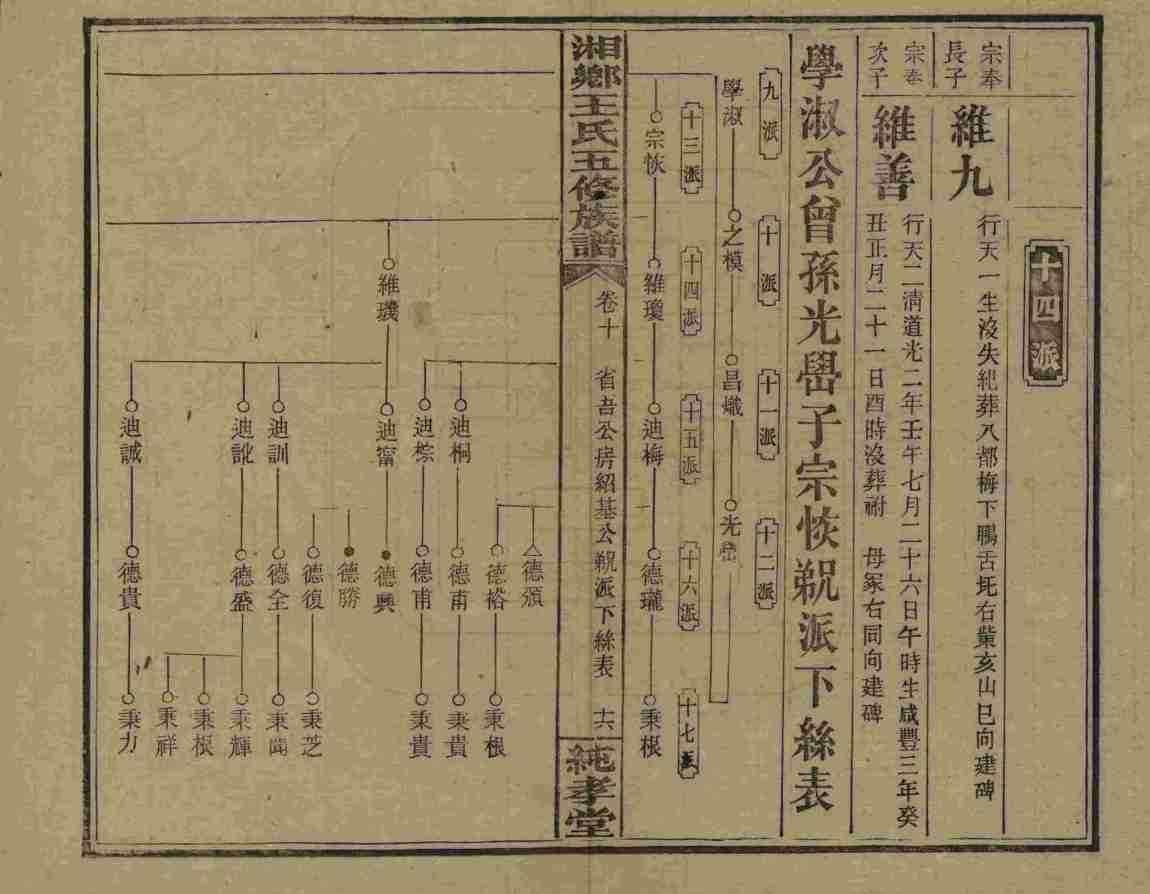 十四派
宗奉
長子
維九
行天一生沒失紀葬八都梅下鵬舌坵右
亥山巳向建碑
宗奉
次子
維善
行天二清道光二年壬午七月二十六日午時生咸豐三年癸
丑正月二十一日酉時沒葬祔 母冢右同向建碑
學淑公曾孫光壆子宗恢
派下絲表
九派
十派
十一派
十二派
學淑
之模
昌熾
光壆
十三派
十四派
十五派
十六派
十七派
宗恢
維瓊
迪梅
德瓏
秉根
湘鄉王氏五修族譜
卷十
省吾公房紹基公
派下絲表
十六
純孝堂
德頒
德裕
秉根
迪桐
德甫
秉貴
迪棕
德甫
秉貴
維璣
迪甯
德興
德勝
德復
秉芝
迪訓
德全
秉聞
迪訛
德盛
秉輝
秉根
秉祥
迪誠
德貴
秉力